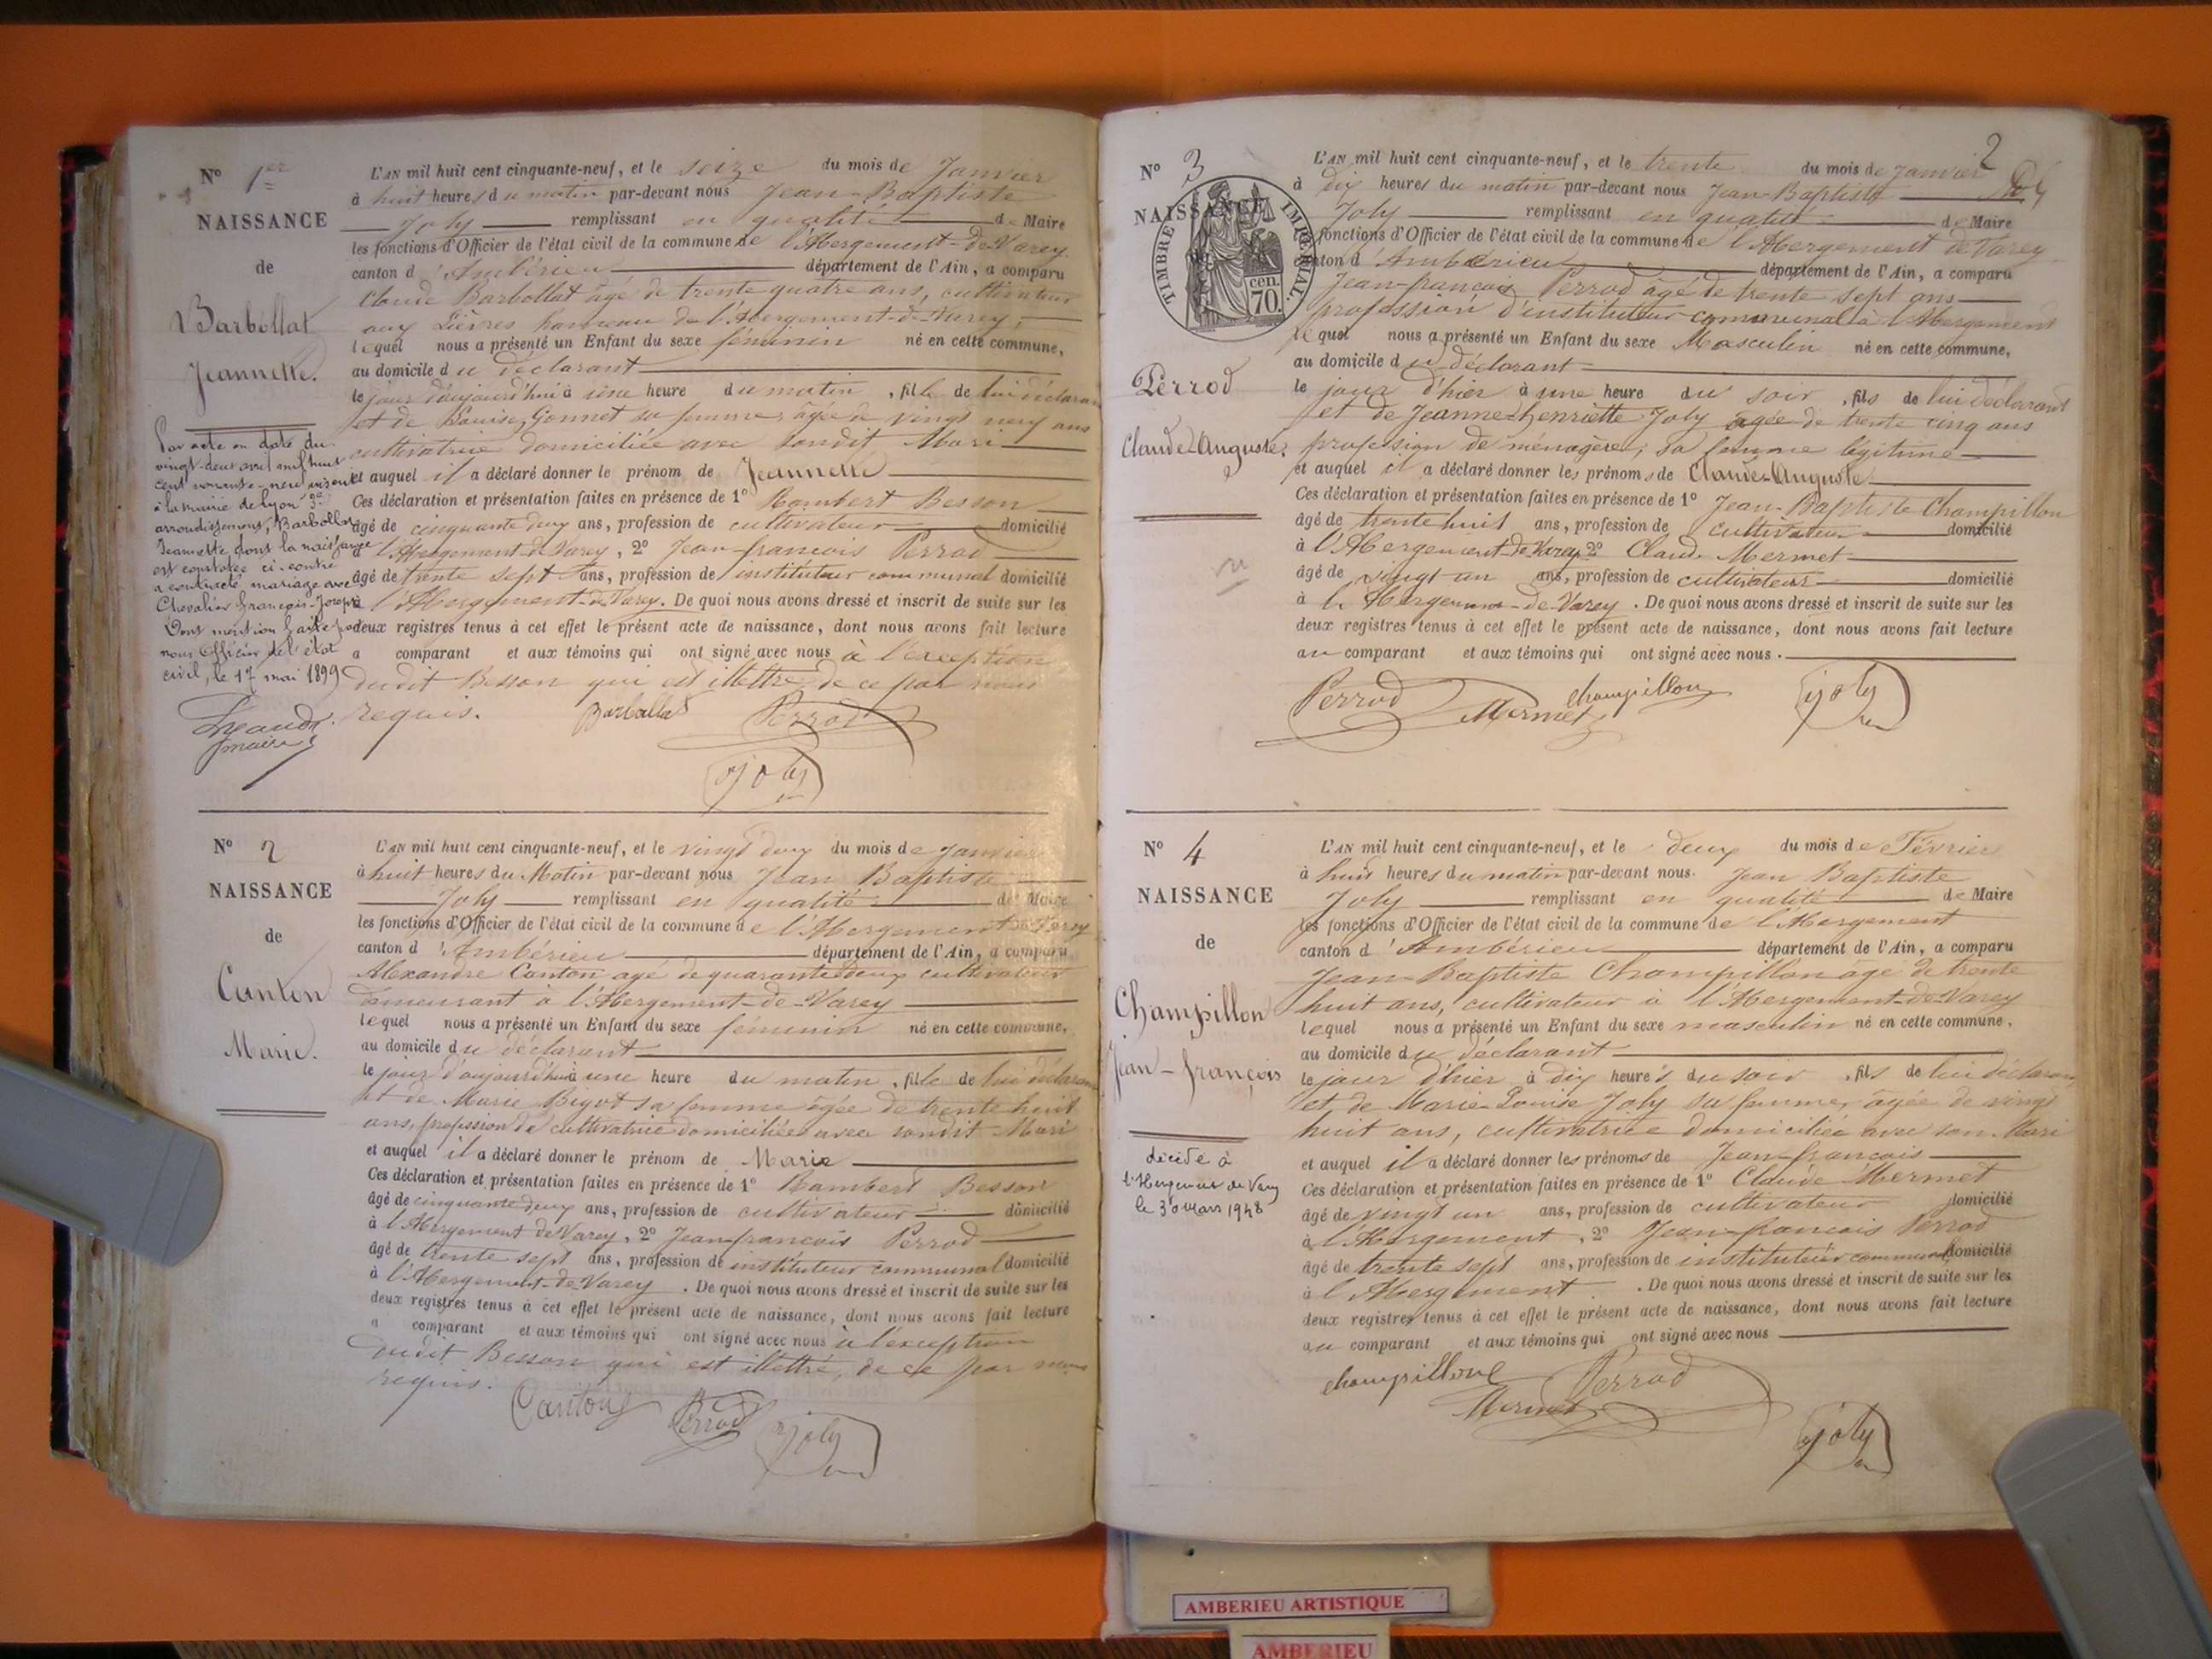 N° 1er
NAISSANCE
de
Barbollat
Jeannette.
Par acte en date du
vingt-deux avril mil huit
cent nonante-neuf
à la mairie de Lyon 3e
arrondissement, Barbollat
Jeannette dont la naissance
est constatée ci-contre
a contracté mariage avec
Chevalier François-Joseph
Dont mention faite par
nous Officier de l'état
civil, le 17 mai 1899
maire
L'AN mil huit cent cinquante-neuf, et le seize du mois de Janvier
à huit heures du matin par-devant nous Jean-Baptiste
Joly remplissant en qualité de Maire
les fonctions d'Officier de l'état civil de la commune de l'Abergement-de-Varey
canton d'Ambérieu département de l'Ain, a comparu
Claude Barbollat âgé de trente quatre ans, cultivateur
aux Lièvres hameau de l'Abergement-de-Varey,
lequel nous a présenté un Enfant du sexe féminin né en cette commune,
au domicile du déclarant
le jour d'aujourd'hui à une heure du matin, fille de lui déclarant
et de Louise Gonnet sa femme, âgée de vingt neuf ans
cultivatrice domiciliée avec sondit Mari
et auquel il a déclaré donner le prénom de Jeannette
Ces déclaration et présentation faites en présence de 1° Rambert Besson
âgé de cinquante deux ans, profession de cultivateur domicilié
à l'Abergement-de-Varey, 2° Jean-francois Perrod
âgé de trente sept ans, profession de instituteur communal domicilié
à l'Abergement-de-Varey. De quoi nous avons dressé et inscrit de suite sur les
deux registres tenus à cet effet le présent acte de naissance, dont nous avons fait lecture
a comparant et aux témoins qui ont signé avec nous à l'exception
dudit Besson qui est illettré de ce par nous
requis. Barbollat Perrod
joly
N° 2
NAISSANCE
de
Canton
Marie.
L'AN mil huit cent cinquante-neuf, et le vingt deux du mois de Janvier
à huit heures du Matin par-devant nous Jean Baptiste
Joly remplissant en qualité de Maire
les fonctions d'Officier de l'état civil de la commune de l'Abergement de Varey
canton d'Ambérieu département de l'Ain, a comparu
Alexandre Canton agé de quarante deux cultivateur
demeurant à l'Abergement-de-Varey
lequel nous a présenté un Enfant du sexe féminin né en cette commune,
au domicile du déclarant
le jour d'aujourd'hui à une heure du matin, fille de lui déclarant
et de Marie Bigot sa femme âgée de trente huit
ans, profession de cultivatrice domiciliée avec sondit Mari
et auquel il a déclaré donner le prénom de Marie
Ces déclaration et présentation faites en présence de 1° Rambert Besson
âgé de cinquante deux ans, profession de cultivateur domicilié
à l'Abergement de Varey, 2° Jean-francois Perrod
âgé de trente sept ans, profession de instituteur communal domicilié
à l'Abergement-de-Varey. De quoi nous avons dressé et inscrit de suite sur les
deux registres tenus à cet effet le présent acte de naissance, dont nous avons fait lecture
a comparant et aux témoins qui ont signé avec nous à l'exception
dudit Besson qui est illettré, de ce par nous
requis. Canton Perrod joly
2
N° 3
NAISSANCE
TIMBRE IMPÉRIAL.
70 cen.
Perrod
Claude-Auguste.
L'AN mil huit cent cinquante-neuf, et le trente du mois de Janvier
à dix heures du matin par-devant nous Jean-Baptiste
Joly remplissant en qualité de Maire
fonctions d'Officier de l'état civil de la commune de l'Abergement de Varey
canton d'Ambérieu département de l'Ain, a comparu
Jean-francois Perrod âgé de trente sept ans
profession d'instituteur communal à l'Abergement
lequel nous a présenté un Enfant du sexe Masculin né en cette commune,
au domicile du déclarant
le jour d'hier à une heure du soir, fils de lui déclarant
et de Jeanne-henriette Joly agée de trente cinq ans
profession de ménagère, sa femme légitime
et auquel il a déclaré donner les prénoms de Claude-Auguste
Ces déclaration et présentation faites en présence de 1° Jean-Baptiste Champillon
âgé de trente huit ans, profession de cultivateur domicilié
à l'Abergement-de-Varey 2° Claude Mermet
âgé de vingt un ans, profession de cultivateur domicilié
à l'Abergement-de-Varey. De quoi nous avons dressé et inscrit de suite sur les
deux registres tenus à cet effet le présent acte de naissance, dont nous avons fait lecture
au comparant et aux témoins qui ont signé avec nous.
Perrod Mermet champillon joly
N° 4
NAISSANCE
de
Champillon
Jean-françois
décédé à
l'Abergement de Varey
le 30 mars 1948
L'AN mil huit cent cinquante-neuf, et le deux du mois de Février
à huit heures du matin par-devant nous Jean Baptiste
Joly remplissant en qualité de Maire
les fonctions d'Officier de l'état civil de la commune de l'Abergement
canton d'Ambérieu département de l'Ain, a comparu
Jean-Baptiste Champillon âgé de trente
huit ans, cultivateur à l'Abergement-de-Varey
lequel nous a présenté un Enfant du sexe masculin né en cette commune,
au domicile du déclarant
le jour d'hier à dix heures du soir, fils de lui déclarant
et de Marie-Louise Joly sa femme, agée de vingt
huit ans, cultivatrice domiciliée avec son Mari
et auquel il a déclaré donner les prénoms de Jean-francois
Ces déclaration et présentation faites en présence de 1° Claude Mermet
âgé de vingt un ans, profession de cultivateur domicilié
à l'Abergement, 2° Jean-francois Perrod
âgé de trente sept ans, profession de instituteur communal domicilié
à l'Abergement. De quoi nous avons dressé et inscrit de suite sur les
deux registres tenus à cet effet le présent acte de naissance, dont nous avons fait lecture
au comparant et aux témoins qui ont signé avec nous
champillon Perrod
Mermet
joly
AMBERIEU ARTISTIQUE
AMBERIEU